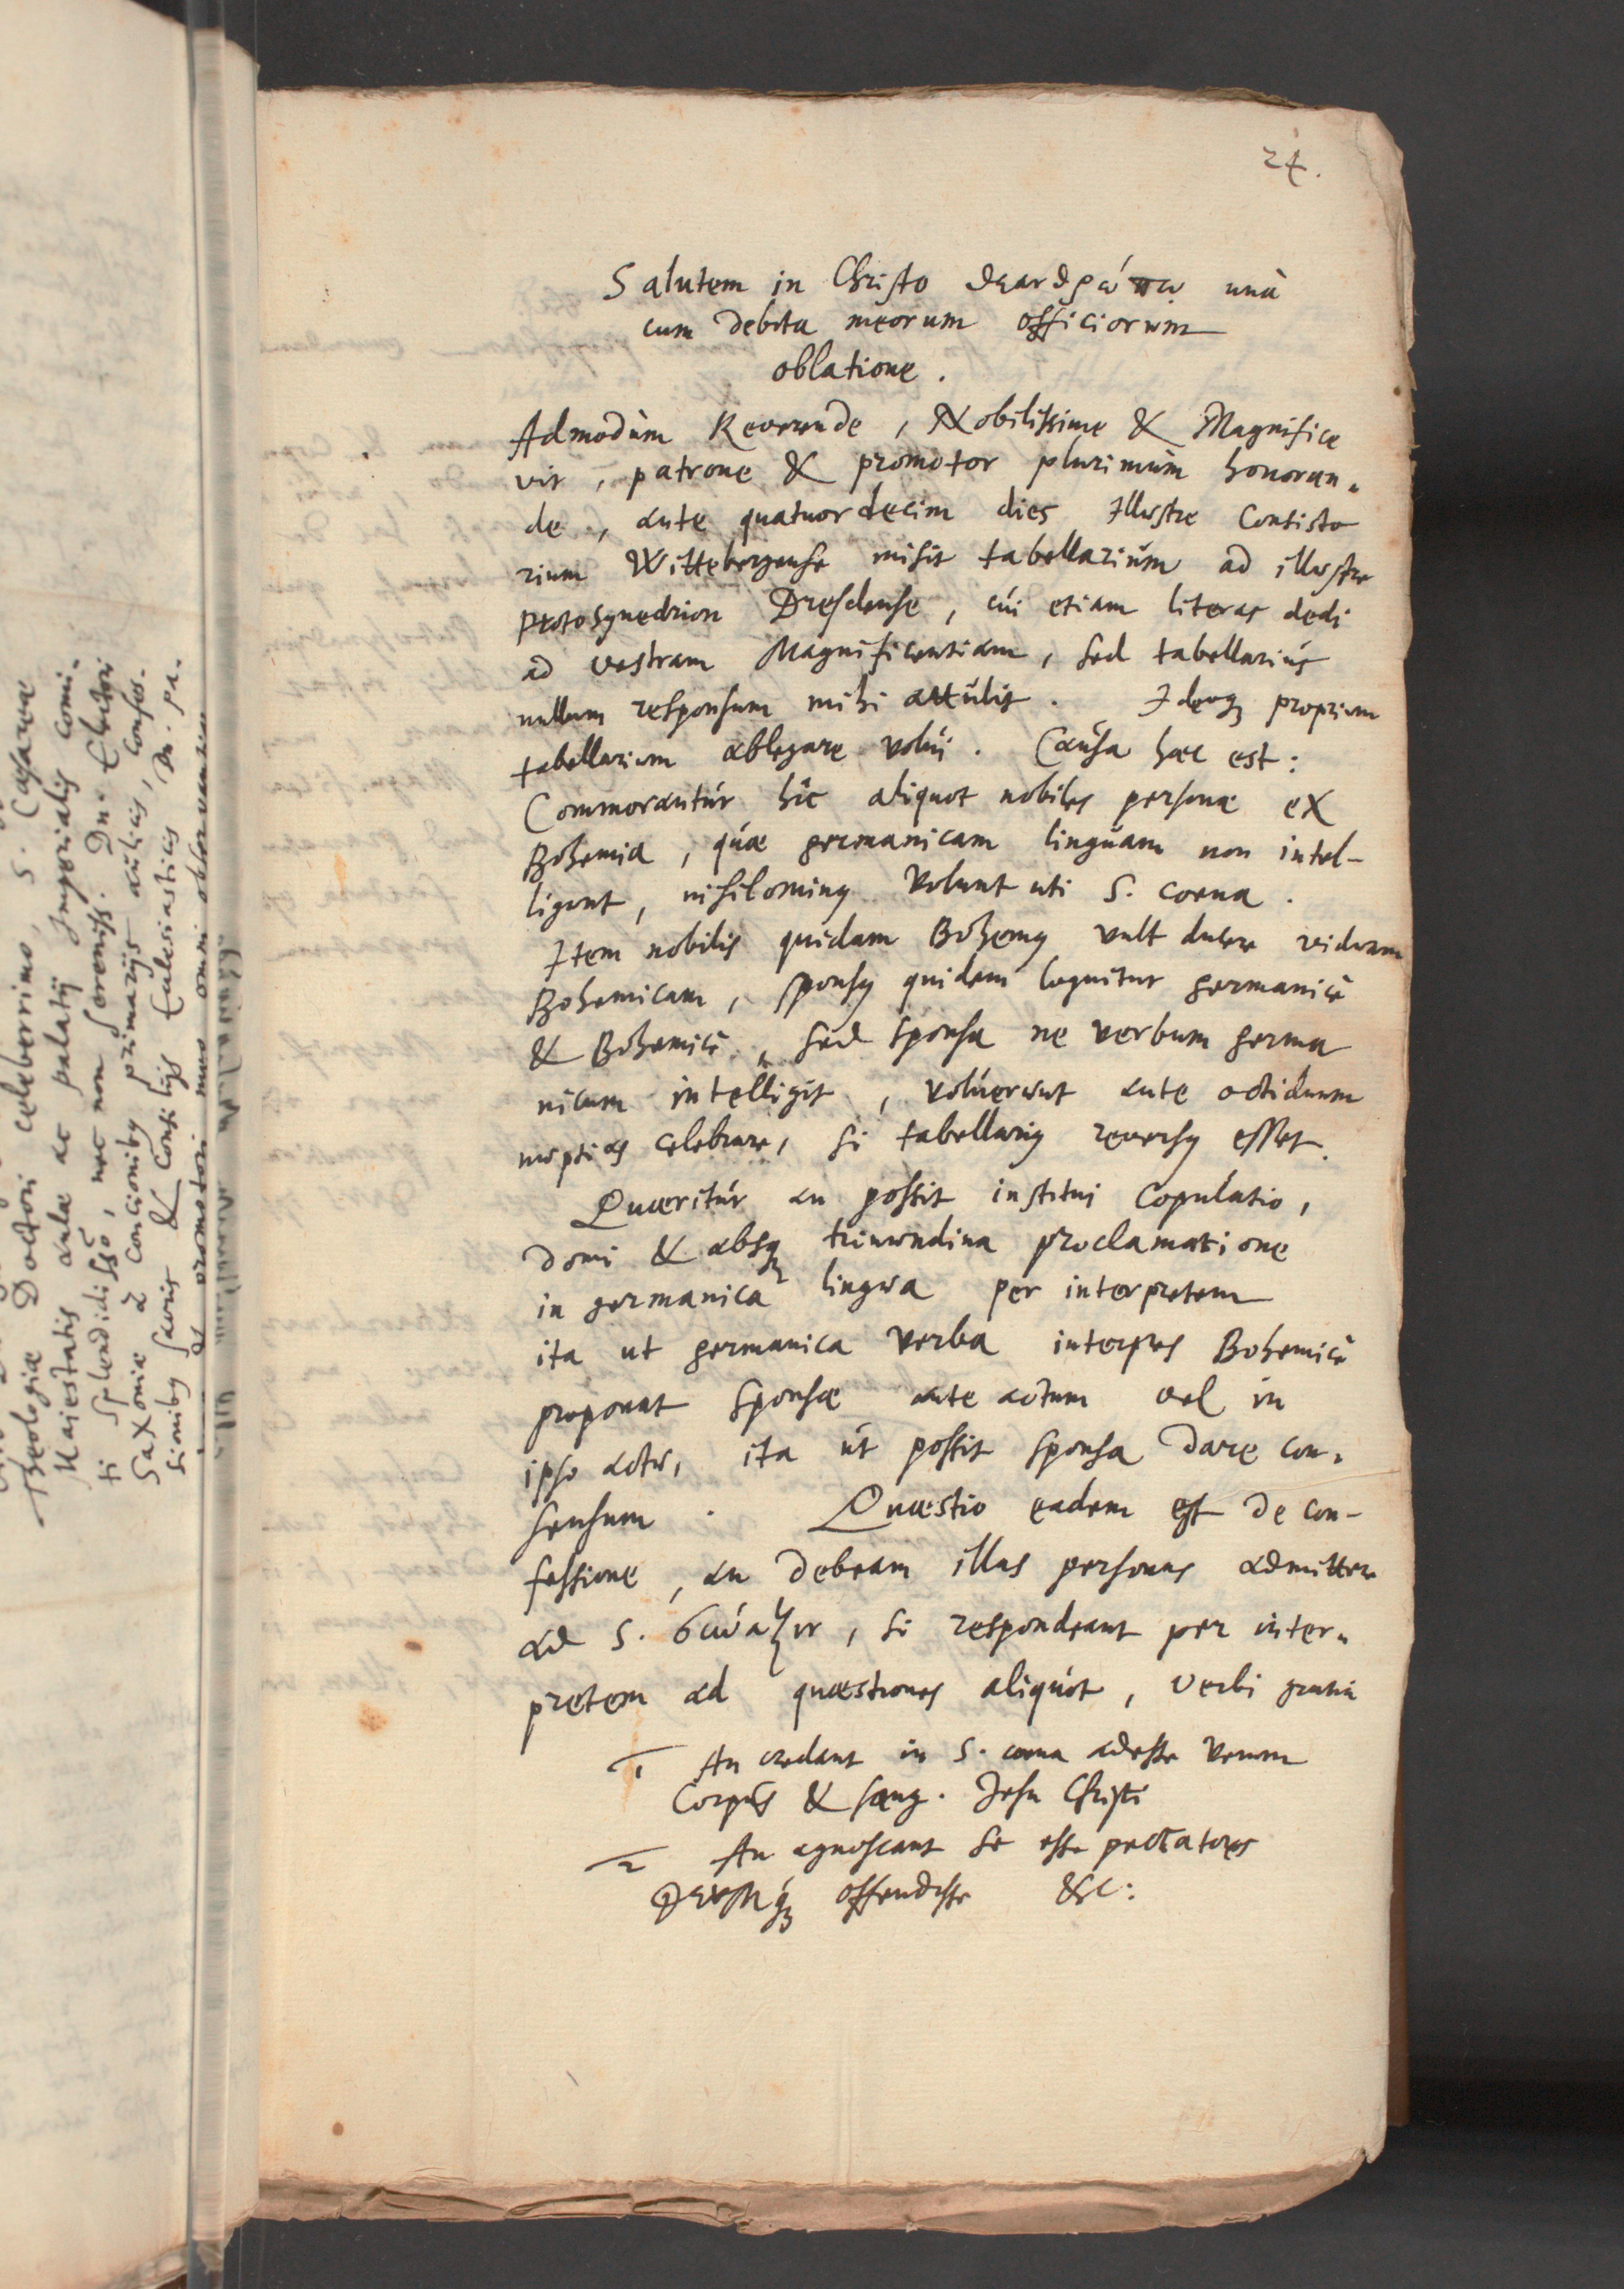 24.
Salutem in Christo θεανθρώπῳ unà
cum debita meorum officiorum
oblatione.
Admodùm Reverende, Nobilissime & Magnifice
vir, patrone & promotor plurimùm honoran„
de, ante quatuordecim dies Illustre Consisto
rium Wittebergense misit tabellariùm ad illustre
protosynedrion Dresdense, cùi etiam literas dedi
ad vestram Magnificentiam, sed tabellariùs
nullum responsum mihi attùlit. Ideoq; proprium
tabellarium ablegare volùi. Caùsa haec est:
Commorantùr hîc aliquot nobiles personae ex
Bohemia, quae germanicam linguam non intel-
ligunt, nihilominꝰ volunt uti S. coena.
Item nobilis quidam Bohemꝰ vult ducere viduam
Bohemicam, sponsꝰ quidem loquitur germanicè
& Bohemicè, sed sponsa ne verbum germa
nicum intelligit, volùerunt ante octiduum
nùptias celebrare, si tabellariꝰ reversꝰ esset.
Quaeritùr an possit institui Copulatio,
domi & absq; trinundina proclamatione
in germanica lingua per interpretem
ita ut germanica verba interpres Bohemicè
proponat sponsae ante actum vel in
ipso actu, ita ùt possit sponsa dare con„
sensum. Quaestio eadem est de con-
fessione, an debeam illas personas admittere
ad S. σύναξιν, si respondeant per inter„
pretem ad quaestiones aliquòt, verbi gratia
1 An credant in S. coena adesse verum
Corpùs & sang. Jesu Christi
2 An agnoscant se esse peccatores
Deumq; offendisse &c:
Theologiae Doctori celeberrimo, S. Caesareae
Maiestatis aulae ac palatij Imperialis Comi„
ti splendidissº, nec non Sereniss. Du. Electori
Saxoniae à Concionibꝰ primarijs aùlicis, confes-
sionibꝰ sacris & Consilijs Ecclesiasticis Dn. pa-
promotori meo omni observantia